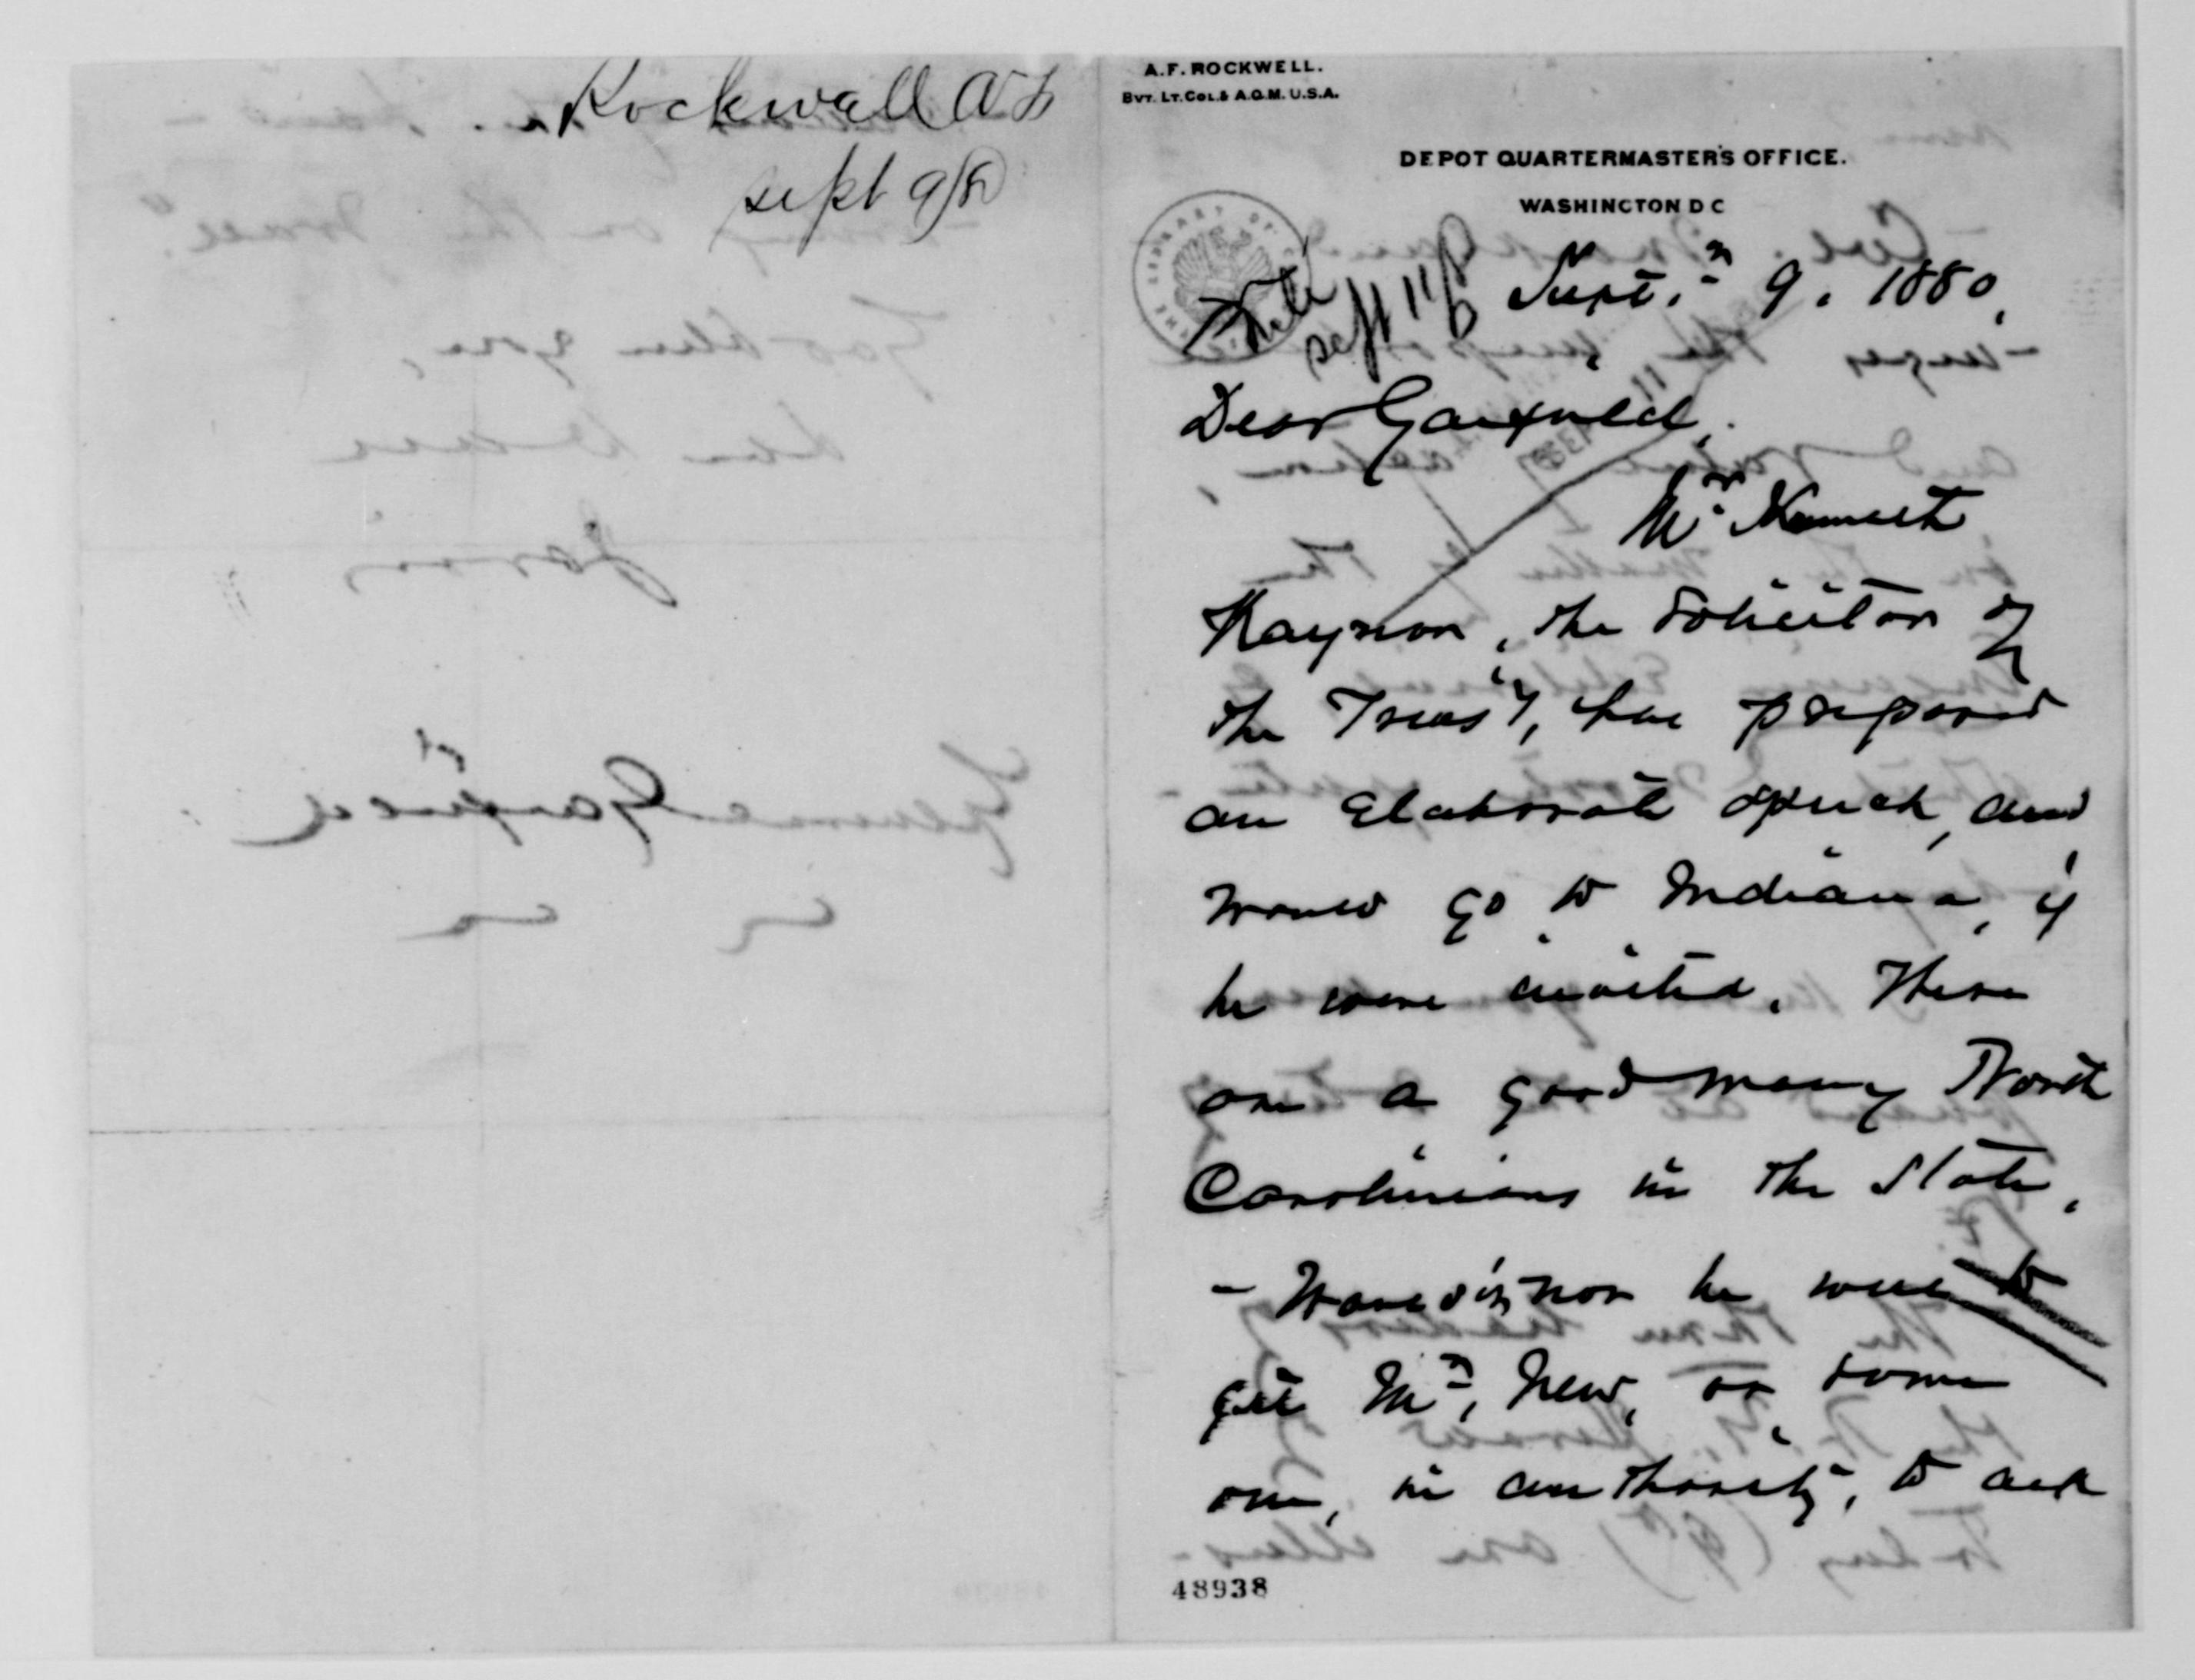 Rockwell A F
Sept 9/80
A.F. ROCKWELL.
BVT. LT. COL. & A.Q.M. U.S.A.
DEPOT QUARTERMASTER'S OFFICE.
WASHINGTON D C
Sept. 9. 1880.
Sept 11/80
Dear Garfield,
Mr. Kenneth
Raynor, the Solicitor of
the Treas'y, has prepared
an elaborate speech, and
would go to Indiana, if
he were invited. There
are a good many North
Carolinians in the State,
- Would it not be well to
get Mr. New, or some
one, in authority, to ask
48938